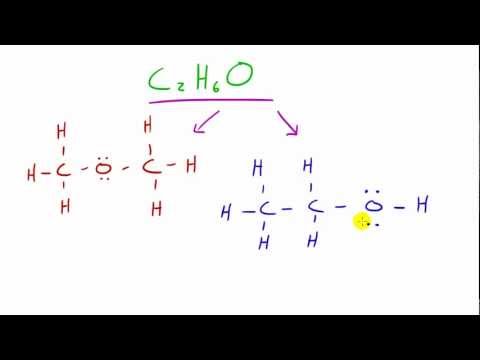 C₂H₆O
H H
H – C – O – C – H
H H
H H
H – C – C – O – H
H H